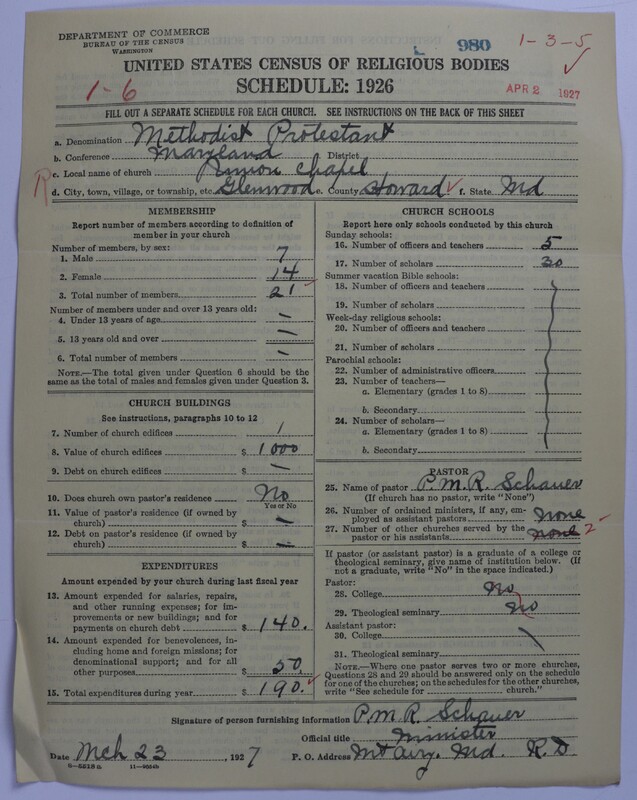 DEPARTMENT OF COMMERCE
BUREAU OF THE CENSUS
WASHINGTON
980
1-3-5
UNITED STATES CENSUS OF RELIGIOUS BODIES
SCHEDULE: 1926
1-6
APR 2 1927
FILL OUT A SEPARATE SCHEDULE FOR EACH CHURCH. SEE INSTRUCTIONS ON THE BACK OF THIS SHEET
a. Denomination Methodist Protestant
b. Conference Maryland District
c. Local name of church Chapel
d. City, town, village, or township, etc. Glenwood e. County Howard f. State Md
MEMBERSHIP
Report number of members according to definition of
member in your church
Number of members, by sex:
1. Male 7
2. Female 14
3. Total number of members 21
Number of members under and over 13 years old:
4. Under 13 years of age —
5. 13 years old and over —
6. Total number of members —
NOTE.—The total given under Question 6 should be
same as the total of males and females given under Question 3.
CHURCH BUILDINGS
See instructions, paragraphs 10 to 12
7. Number of church edifices 1
8. Value of church edifices $ 1000
9. Debt on church edifices $ —
10. Does church own pastor's residence No
Yes or No
11. Value of pastor's residence (if owned by
church) $ —
12. Debt on pastor's residence (if owned by
church) $ —
EXPENDITURES
Amount expended by your church during last fiscal year
13. Amount expended for salaries, repairs,
and other running expenses; for im-
provements or new buildings; and for
payments on church debt $ 140.
14. Amount expended for benevolences, in-
cluding home and foreign missions; for
denominational support; and for all
other purposes $ 50
15. Total expenditures during year $ 190.
CHURCH SCHOOLS
Report here only schools conducted by this church
Sunday schools:
16. Number of officers and teachers 5
17. Number of scholars 30
Summer vacation Bible schools:
18. Number of officers and teachers
19. Number of scholars
Week-day religious schools:
20. Number of officers and teachers
21. Number of scholars
Parochial schools:
22. Number of administrative officers
23. Number of teachers—
a. Elementary (grades 1 to 8)
b. Secondary
24. Number of scholars—
a. Elementary (grades 1 to 8)
b. Secondary
PASTOR
25. Name of pastor P.M.R. Schauer
(If church has no pastor, write "None")
26. Number of ordained ministers, if any, em-
ployed as assistant pastors none
27. Number of other churches served by the
pastor or his assistants none 2
If pastor (or assistant pastor) is a graduate of a college or
theological seminary, give name of institution below. (If
not a graduate, write "No" in the space indicated.)
Pastor:
28. College No
29. Theological seminary No
Assistant pastor:
30. College
31. Theological seminary
NOTE.—Where one pastor serves two or more churches,
Questions 28 and 29 should be answered only on the schedule
for one of the churches; on the schedules for the other churches,
write "See schedule for church."
Signature of person furnishing information P.M.R. Schauer
Official title Minister
Date Mch 23, 1927 P. O. Address Mt Airy. Md. R.D.